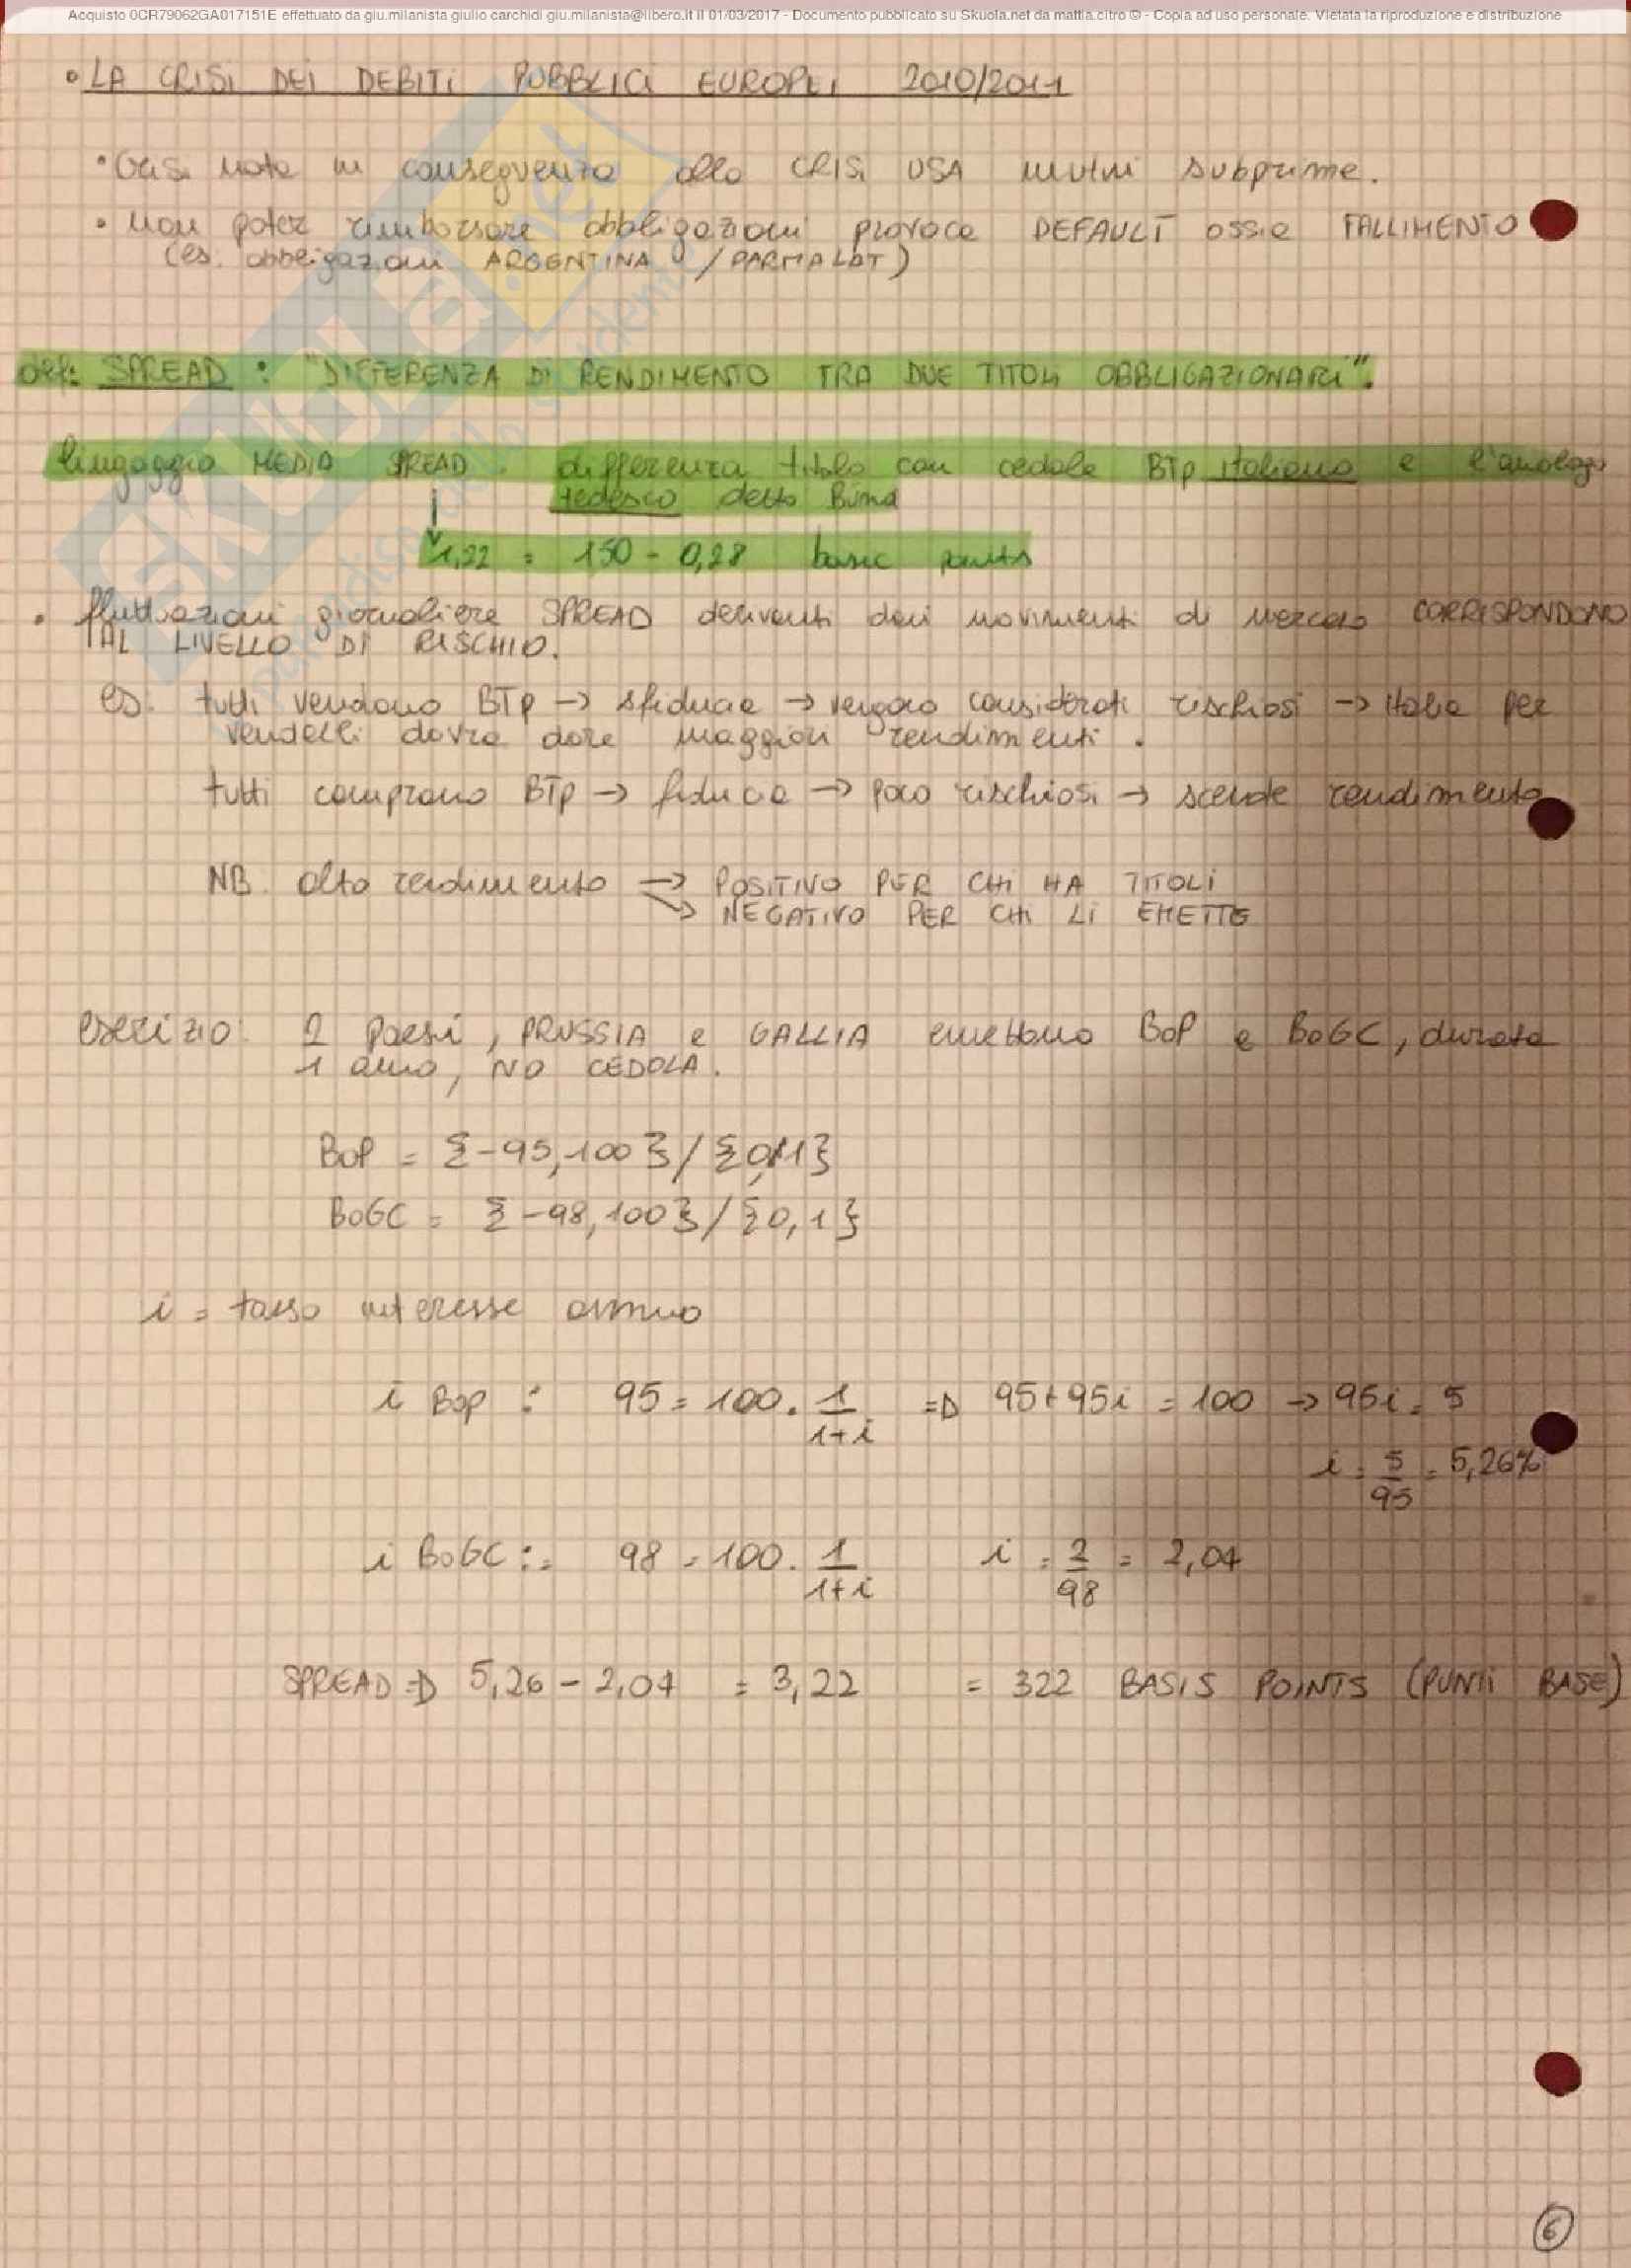 Acquisto 0CR79062GA017151E effettuato da giu.milanista giulio carchidi giu.milanista@libero.it il 01/03/2017 - Documento pubblicato su Skuola.net da mattia.citro © - Copia ad uso personale. Vietata la riproduzione e distribuzione
• LA CRISI DEI DEBITI PUBBLICI EUROPEI 2010/2011
• Crisi nata in conseguenza alla CRISI USA mutui subprime.
• Non poter rimborsare obbligazioni provoca DEFAULT ossia FALLIMENTO
(es. obbligazioni ARGENTINA / PARMALAT)
def: SPREAD : "DIFFERENZA DI RENDIMENTO TRA DUE TITOLI OBBLIGAZIONARI".
linguaggio MEDIA SPREAD . differenza titolo con cedole BTp italiano e l'analogo
tedesco detto Bund
1,22 = 150 - 0,28 basic points
• fluttuazioni giornaliere SPREAD derivanti dai movimenti di mercato CORRISPONDONO
AL LIVELLO DI RISCHIO.
es: tutti vendono BTp → sfiducia → vengono considerati rischiosi → Italia per
venderli dovrà dare maggiori rendimenti.
tutti comprano BTp → fiducia → poco rischiosi → scende rendimento
NB. alto rendimento → POSITIVO PER CHI HA TITOLI
→ NEGATIVO PER CHI LI EMETTE
esercizio: 2 paesi, PRUSSIA e GALLIA emettono BOP e BOGC, durata
1 anno, NO CEDOLA.
BOP = {-95,100} / {0,1}
BOGC = {-98,100} / {0,1}
i = tasso interesse annuo
i BOP : 95 = 100 . 1/1+i => 95+95i = 100 → 95i = 5
i = 5/95 = 5,26%
i BOGC := 98 = 100 . 1/1+i i = 2/98 = 2,04
SPREAD => 5,26 - 2,04 = 3,22 = 322 BASIS POINTS (PUNTI BASE)
6